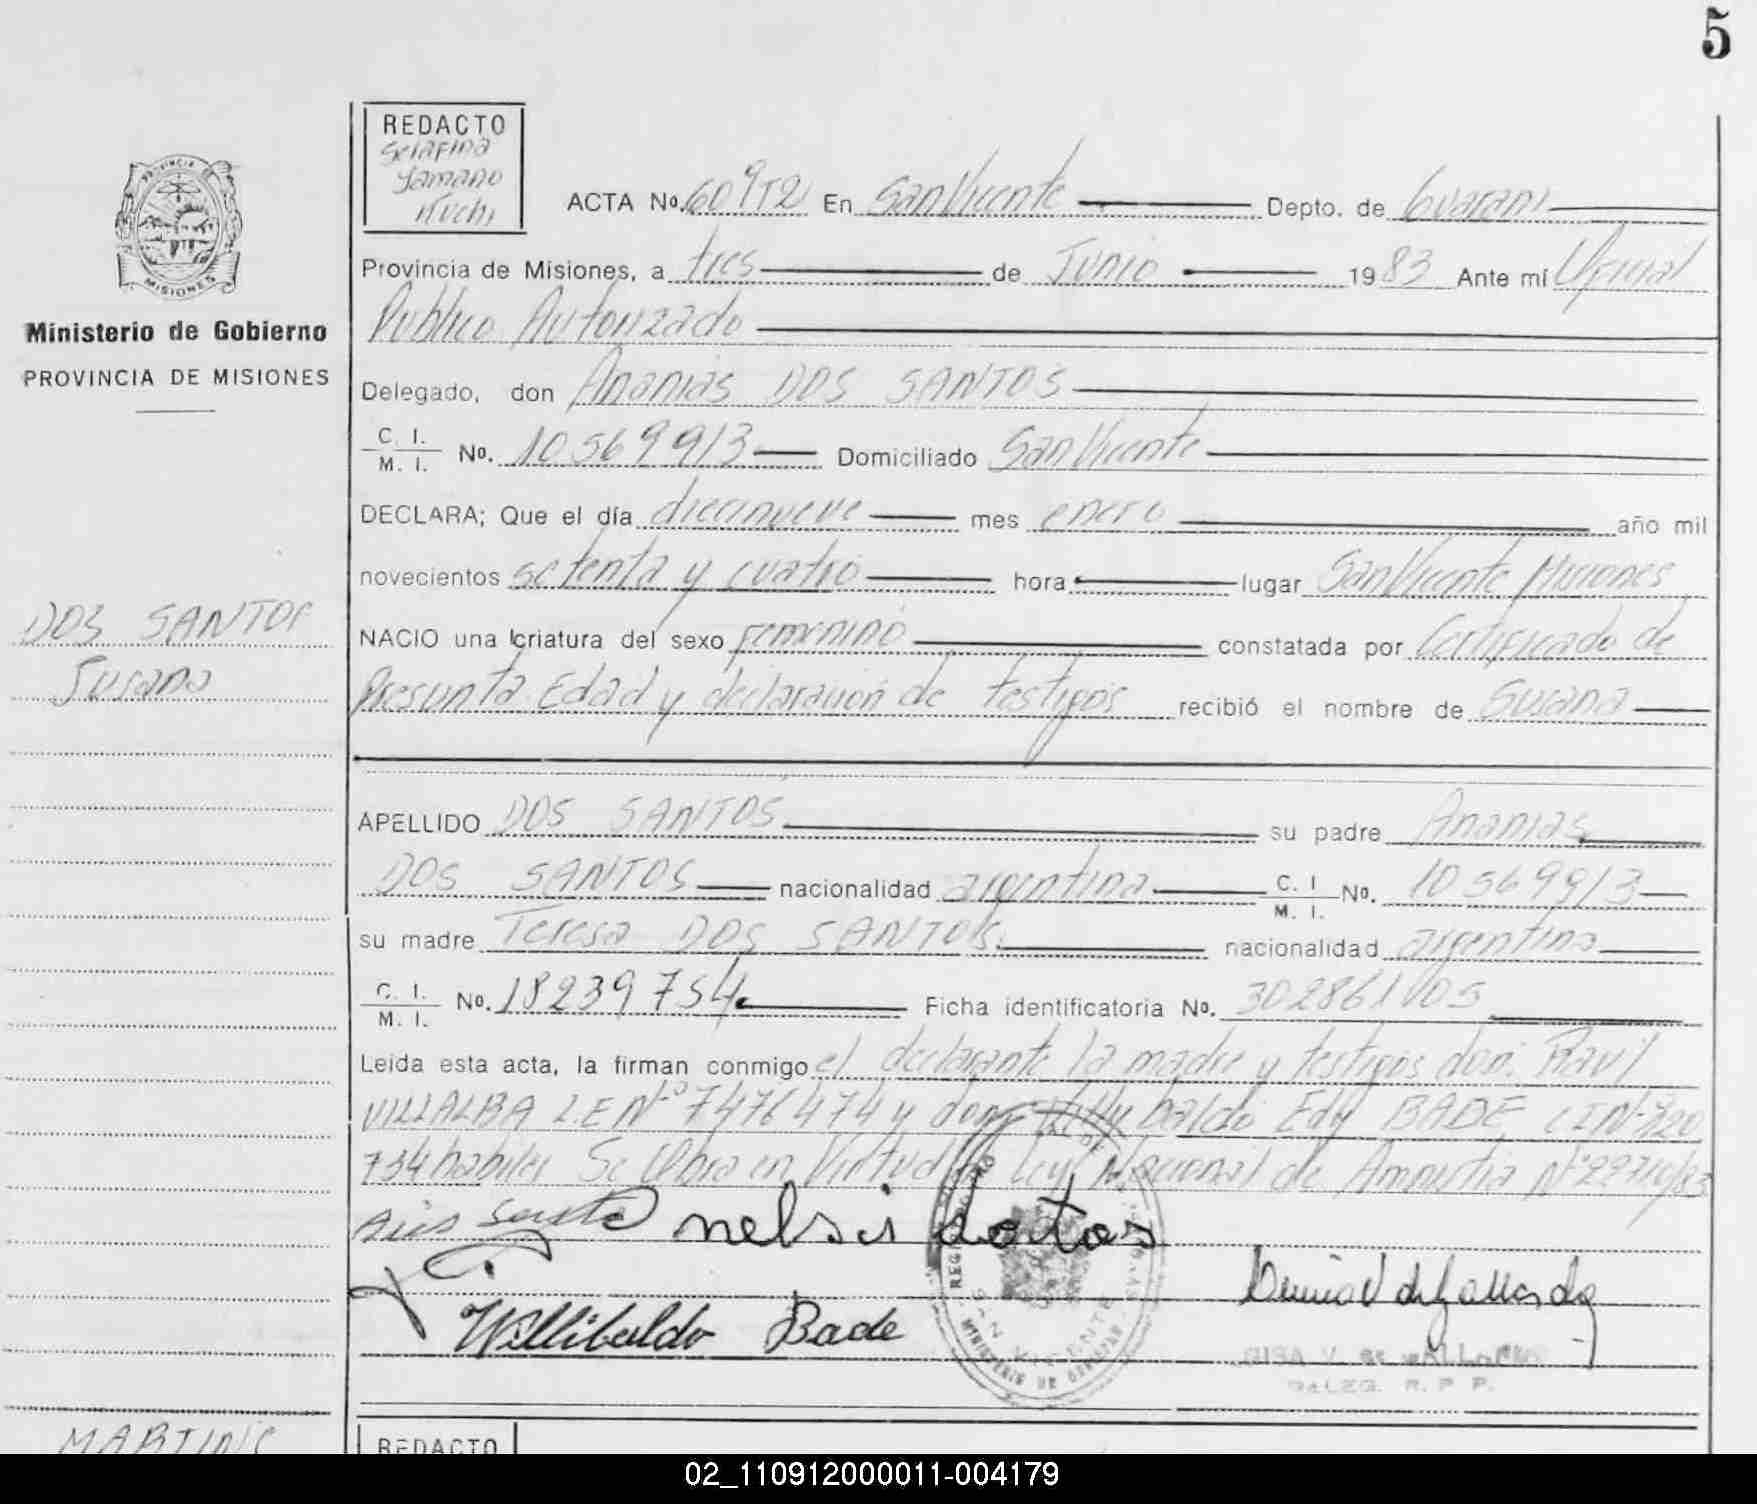 5
REDACTO
Serafina
Yamano
Kuchi
ACTA No. 60952 En San Vicente Depto. de Guarani
PROVINCIA DE
MISIONES
Provincia de Misiones, a tres de Junio 1983 Ante mí Oficial
Publico Autorizado
Ministerio de Gobierno
PROVINCIA DE MISIONES
Delegado, don Ananias DOS SANTOS
C. I.
M. I. No. 10569913 Domiciliado San Vicente
DECLARA; Que el día diecinueve mes enero año mil
novecientos setenta y cuatro hora lugar San Vicente Misiones
DOS SANTOS
Susana
NACIO una criatura del sexo femenino constatada por Certificado de
Presunta Edad y declaración de testigos recibió el nombre de Susana
APELLIDO DOS SANTOS su padre Ananias
DOS SANTOS nacionalidad argentina C. I. M. I. No. 10569913
su madre Teresa DOS SANTOS. nacionalidad argentina
C. I.
M. I. No. 18239754 Ficha identificatoria No.
Leída esta acta, la firman conmigo el declarante la madre y testigos don: Raul
VILLALBA L.E Nº 7476474 y don Willybaldo Edy BADE CI Nº 720
734 habiles Se Labra en Virtud Ley Nacional de Amnistia Nº
nelsi dotos
Willibaldo Bade
SAN VICENTE
MINISTERIO DE GOBIERNO
DELEG. R. P. P.
MARTINS
REDACTO
02_110912000011-004179